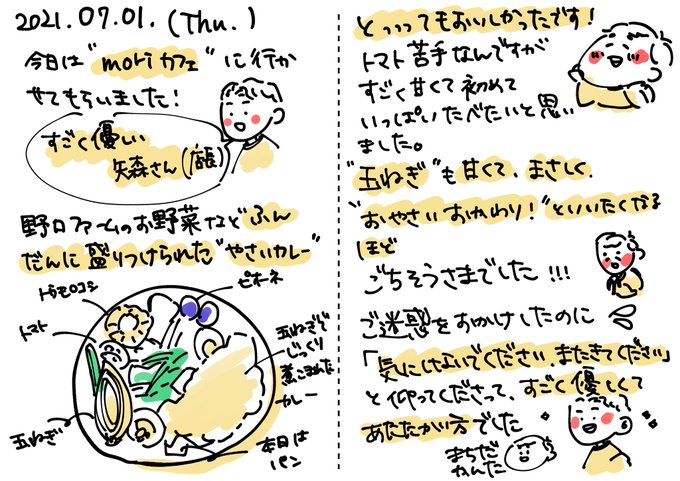 2021.07.01.(Thu.)
今日は"moriカフェ"に行か
せてもらいました！
すごく優しい
矢森さん(店長)
野口ファームのお野菜などふん
だんに盛りつけられた"やさいカレー"
トウモロコシ
ピオーネ
トマト
玉ねぎで
じっくり
煮こまれた
カレー
玉ねぎ
本日は
パン
とっってもおいしかったです！
トマト苦手なんですが
すごく甘くて初めて
いっぱいたべたいと思い
ました。
"玉ねぎ"も甘くて、まさしく、
"おやさいおかわり！"といいたくなる
ほど
ごちそうさまでした!!!
ご迷惑をおかけしたのに
「気にしないでください またきてください」
と仰ってくださって、すごく優しくて
あたたかい方でした
まちだ
かんた